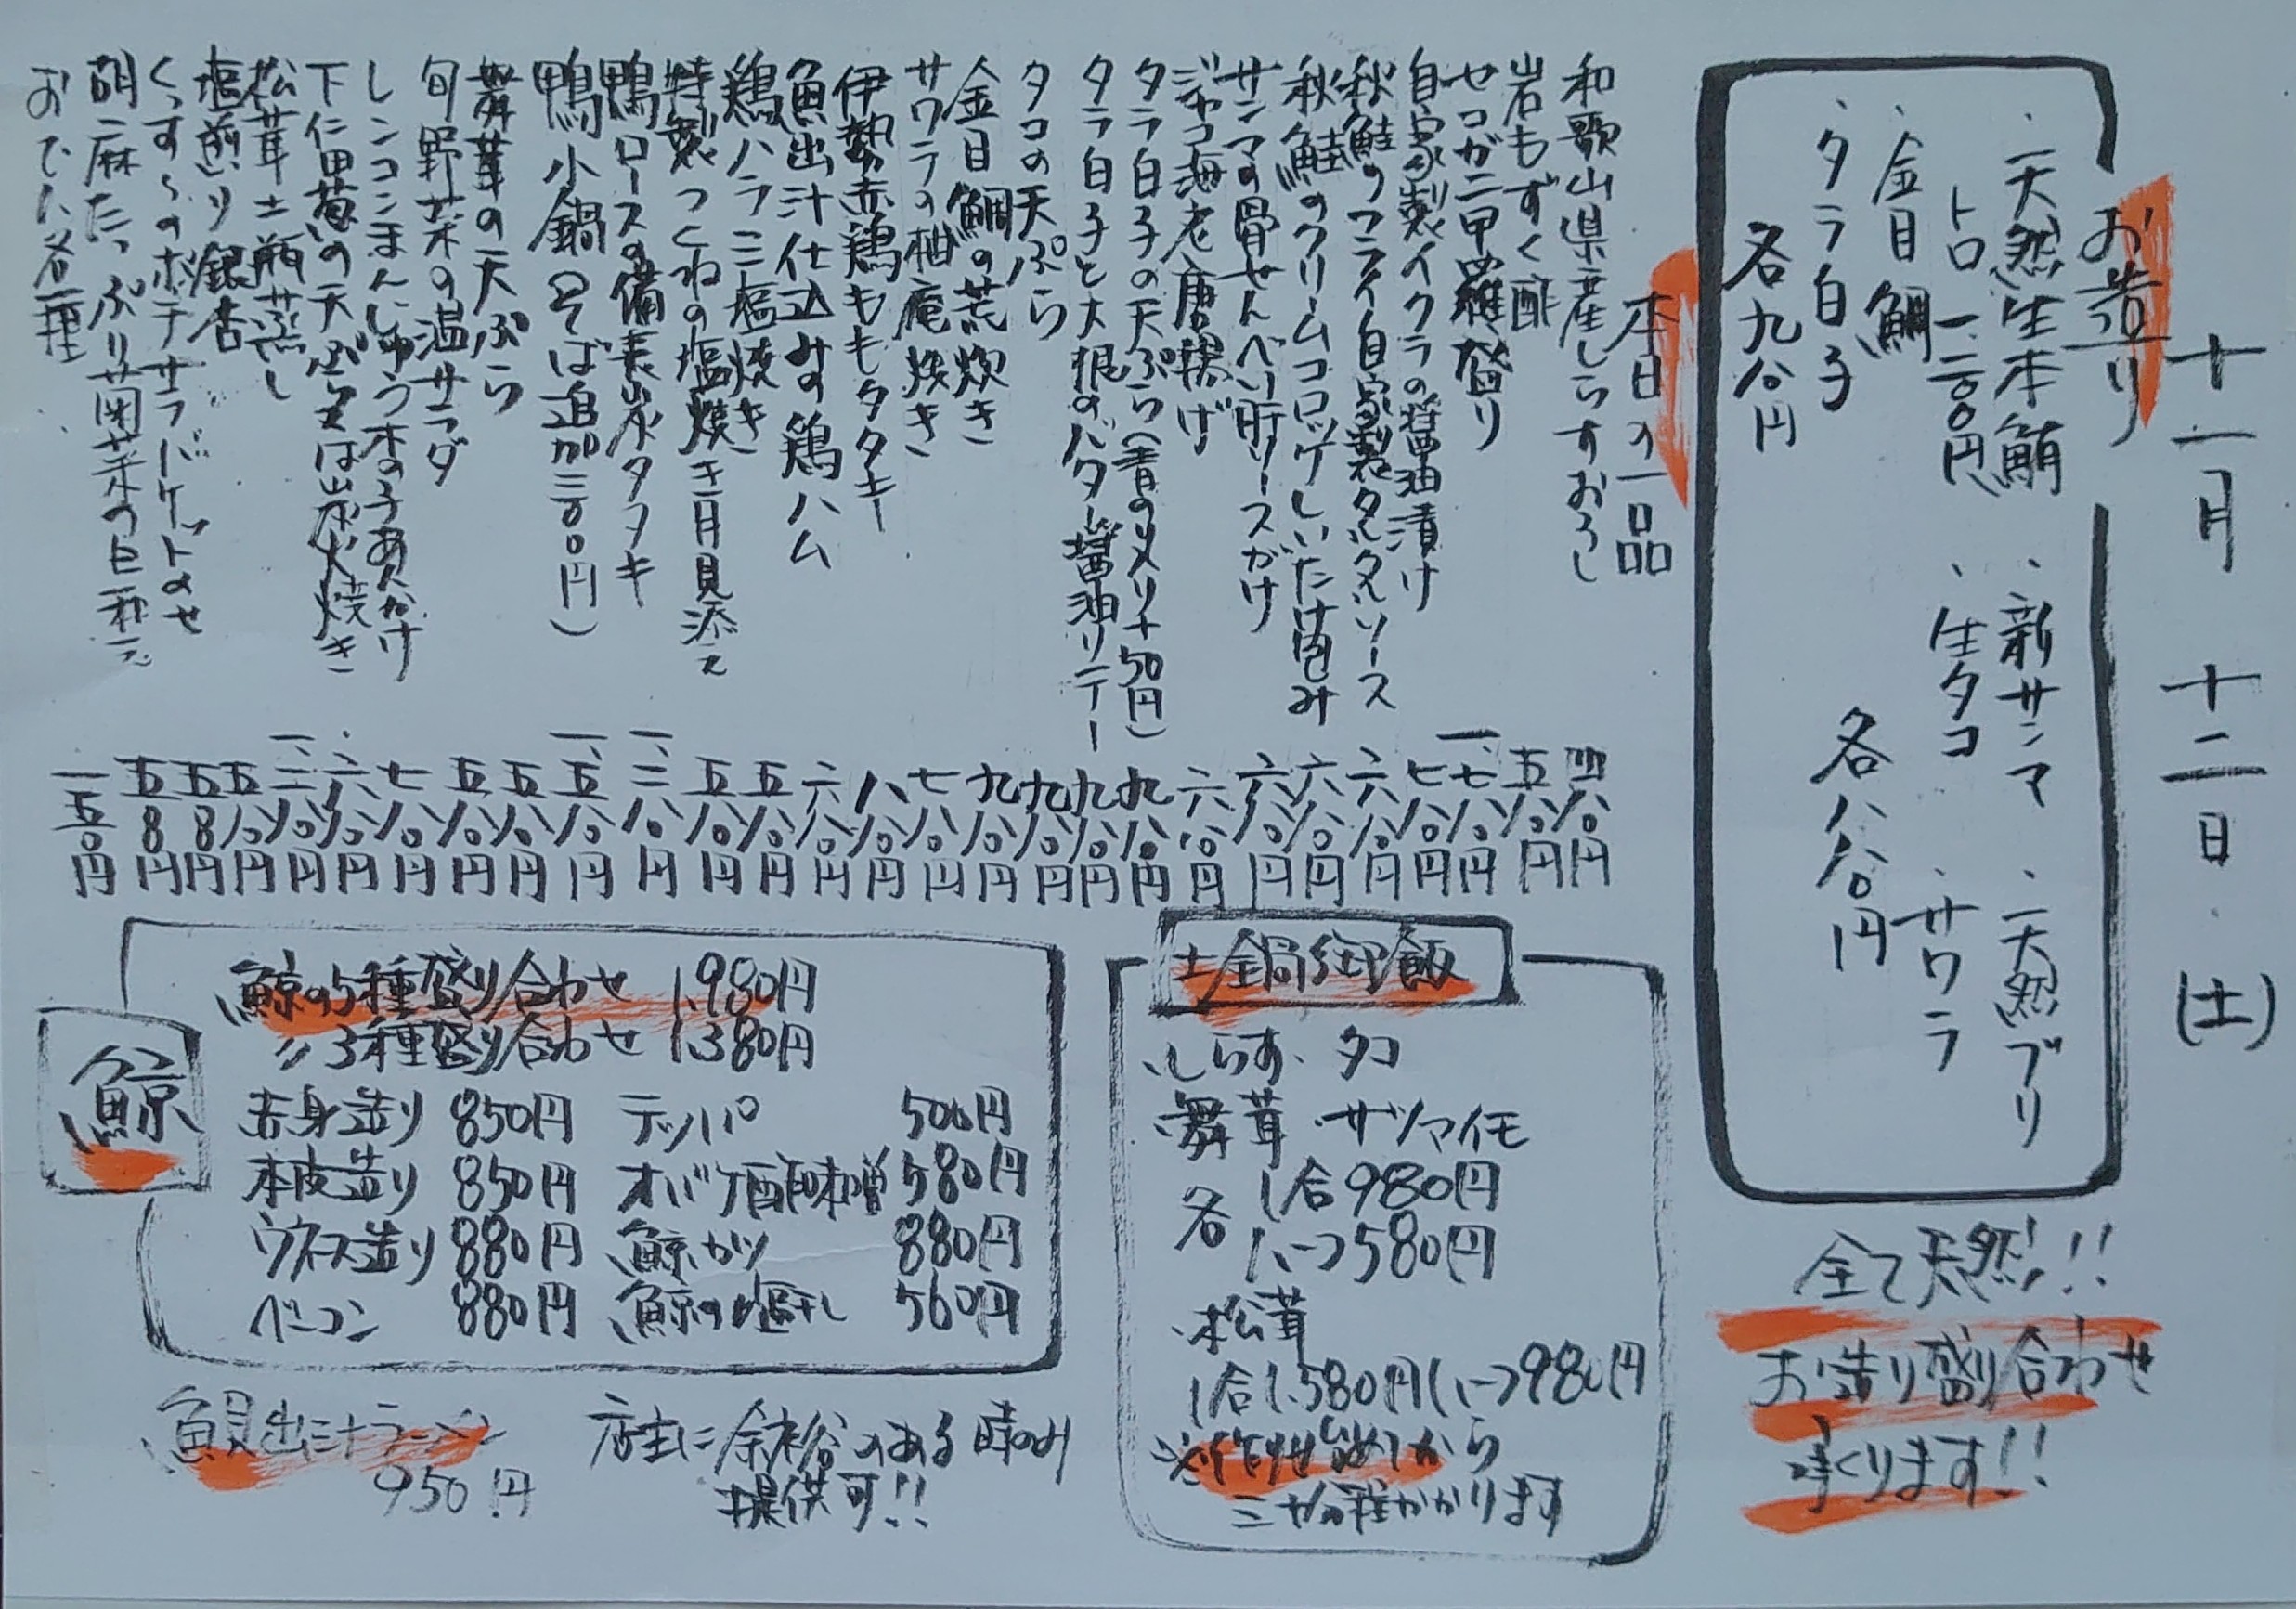 十一月 十二日(土)
お造り
・天然生本鮪 ・新サンマ ・天然ブリ
トロ 一、二〇〇円 ・生タコ ・サワラ
・金目鯛
・タラ白子 各八八〇円
各九八〇円
全て天然!!
お造り盛り合わせ
承ります!!
本日の一品
和歌山県産しらすおろし 四八〇円
岩もずく酢 五八〇円
セコガニ甲羅盛り 一、七八〇円
自家製イクラの醤油漬け 七八〇円
秋鮭のフライ自家製タルタルソース 六八〇円
秋鮭のクリームコロッケしいたけ包み 六八〇円
サンマの骨せんべい肝ソースがけ 六八〇円
ジャコ海老唐揚げ 六八〇円
タラ白子の天ぷら(青のり入り+50円) 九八〇円
タラ白子と大根のバター醤油ソテー 九八〇円
タコの天ぷら 九八〇円
金目鯛の荒炊き 九八〇円
サワラの柚庵焼き 七八〇円
伊勢赤鶏ももタタキ 八八〇円
魚出汁仕込みの鶏ハム 六八〇円
鶏ハラミ塩焼き 五八〇円
特製つくねの塩焼き 月見添え 五八〇円
鴨ロースの備長炭タタキ 一、二八〇円
鴨小鍋(そば追加三〇〇円) 一、五八〇円
舞茸の天ぷら 五八〇円
旬野菜の温サラダ 五八〇円
レンコンまんじゅう木の子あんかけ 七八〇円
下仁田葱の天ぷら又は炭火焼き 六八〇円
松茸土瓶蒸し 一、二八〇円
塩煎り銀杏 五八〇円
くっすんのポテサラバケットのせ 五八〇円
胡麻たっぷり茵菜の白和え 五八〇円
おでん各種 一五〇円
土鍋御飯
・しらす ・タコ
・舞茸 ・サツマイモ
各 1合980円
1/2 580円
・松茸
1合1,580円 1/2 980円
※作り始めてから
三十分程かかります
鯨
鯨の5種盛り合わせ 1,980円
〃3種盛り合わせ 1,380円
赤身造り 850円 テッパ 500円
本皮造り 850円 オバケ酢味噌 580円
ウネス造り 880円 鯨カツ 880円
ベーコン 880円 鯨の塩干し 560円
魚貝出汁ラーメン
950円
店主に余裕のある時のみ
提供可!!